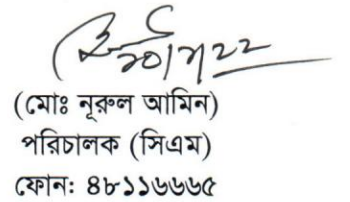 (মোঃ নূরুল আমিন)
পরিচালক (সিএম)
ফোন: ৪৮১১৬৬৬৫